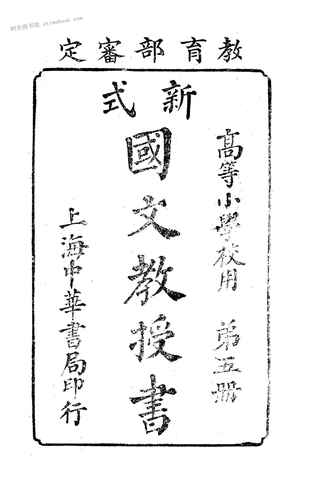 教育部審定
高等小學校用 第五冊
新式
國文教授書
上海中華書局印行